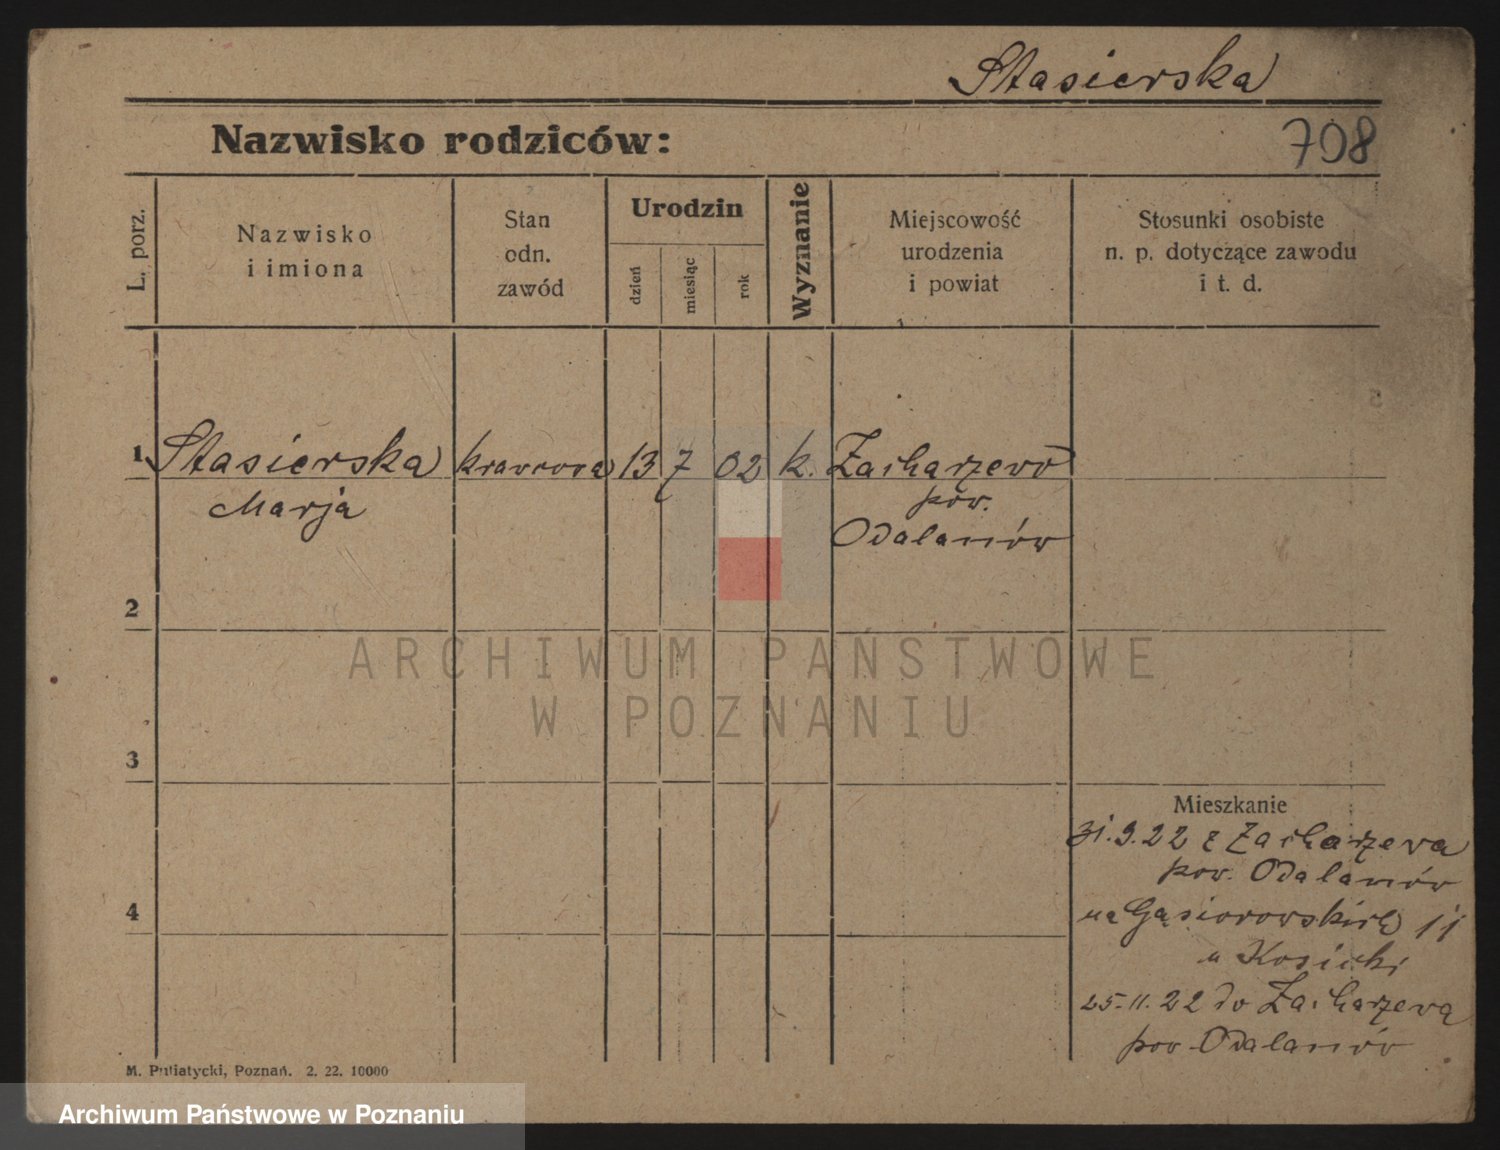 Stasierska
Nazwisko rodziców:
708
L. porz.
Nazwisko
i imiona
Stan
odn.
zawód
Urodzin
dzień
miesiąc
rok
Wyznanie
Miejscowość
urodzenia
i powiat
Stosunki osobiste
n. p. dotyczące zawodu
i t. d.
1 Stasierska krawcowa 13 7 02 k. Zacharzewo
Marja pow.
Odalanów
2
ARCHIWUM PAŃSTWOWE
W POZNANIU
3
Mieszkanie
31.9.22 z Zacharzewa
pow. Odalanów
4
na Gąsiorowskich 11
u Kosicki
25.11.22 do Zacharzewa
pow. Odalanów
M. Putiatycki, Poznań. 2. 22. 10000
Archiwum Państwowe w Poznaniu